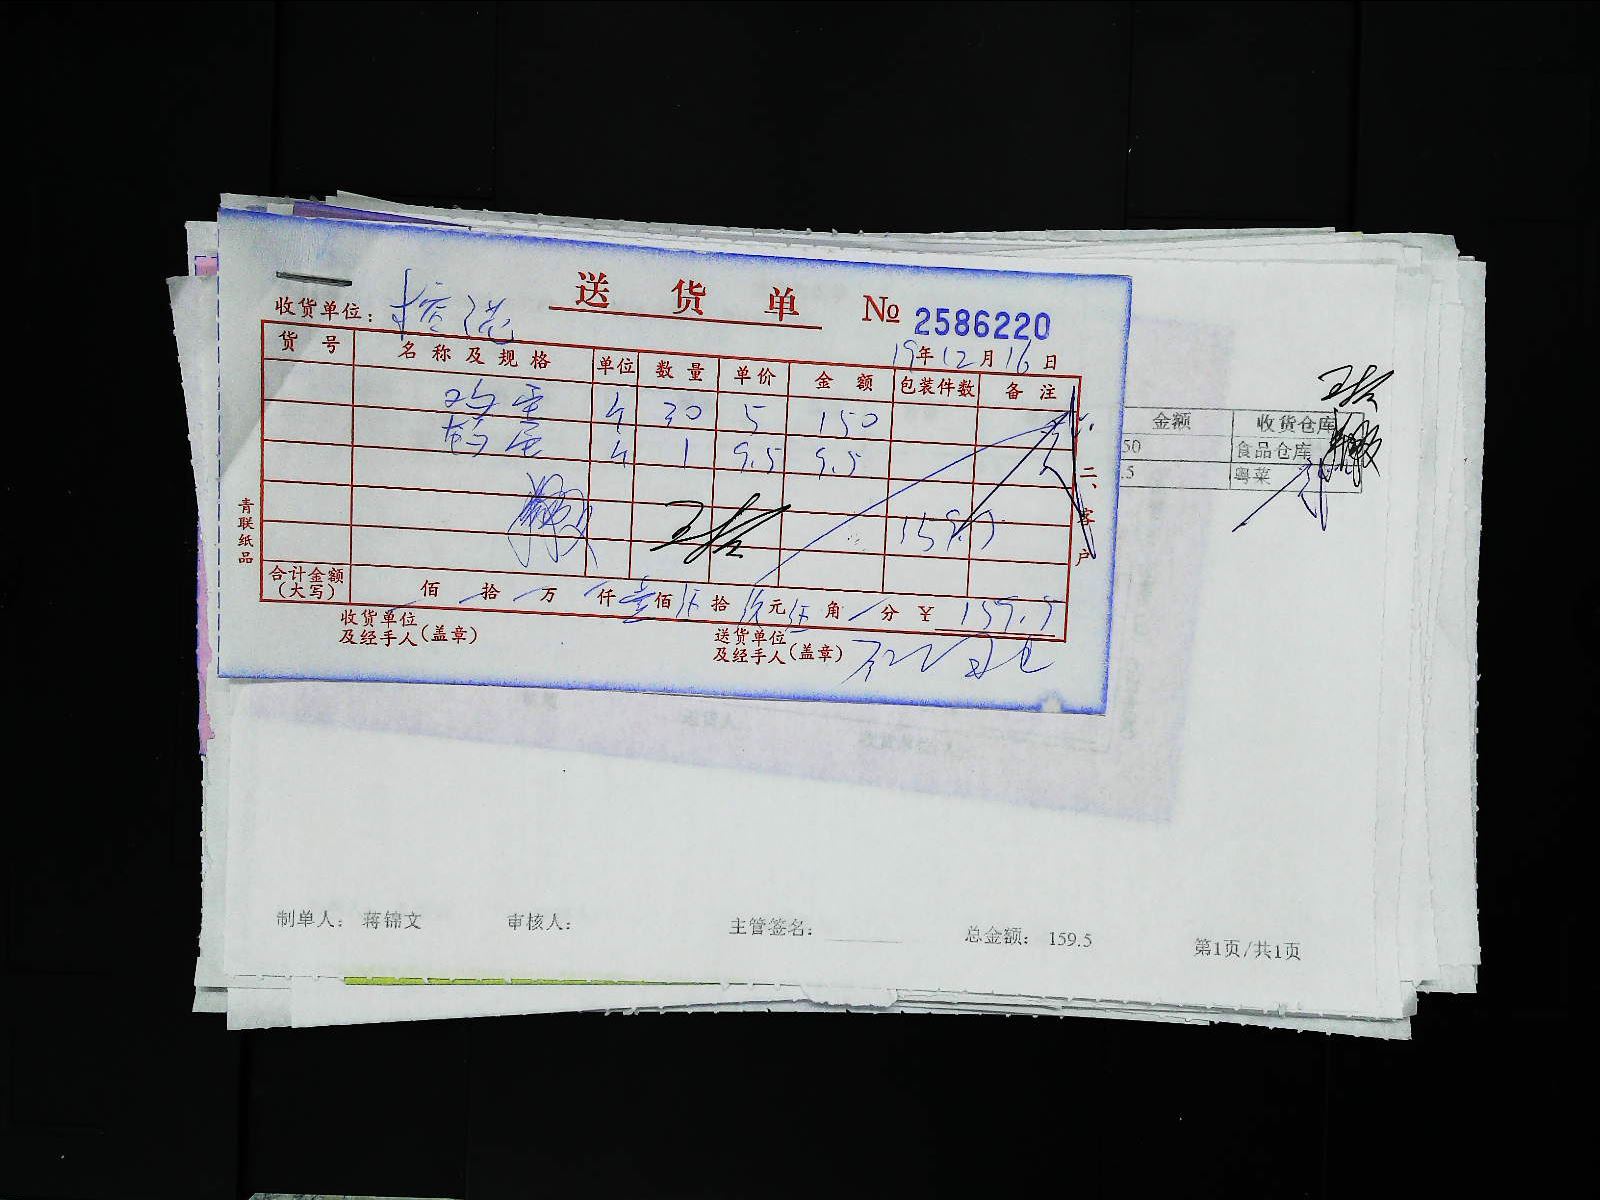 送货单 № 2586220
收货单位：
19年12月16日
货号 名称及规格 单位 数量 单价 金额 包装件数 备注
鸡蛋 斤 30 5 150
蛋 斤 1 9.5 9.5
159.5
合计金额（大写） 佰 拾 万 仟 壹佰伍拾玖元伍角 分 ¥ 159.5
收货单位及经手人（盖章）
送货单位及经手人（盖章）
青联纸品
二、客户
金额 收货仓库
50 食品仓库
.5 粤菜
制单人： 蒋锦文 审核人： 主管签名： 总金额： 159.5 第1页/共1页